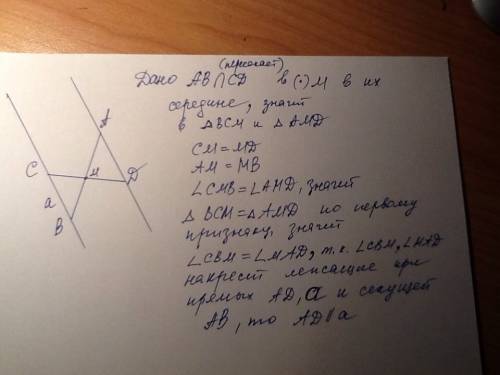 (пересекает)
Дано AB∩CD в (·) M в их
середине, значит
в △BCM и △AMD
CM=MD
AM=MB
∠CMB=∠AMD, значит
△BCM=△AMD по первому
признаку, значит
∠CBM=∠MAD, т.к. ∠CBM, ∠MAD
накрест лежащие при
прямых AD, a и секущей
AB, то AD∥a
A
C
M
D
a
B